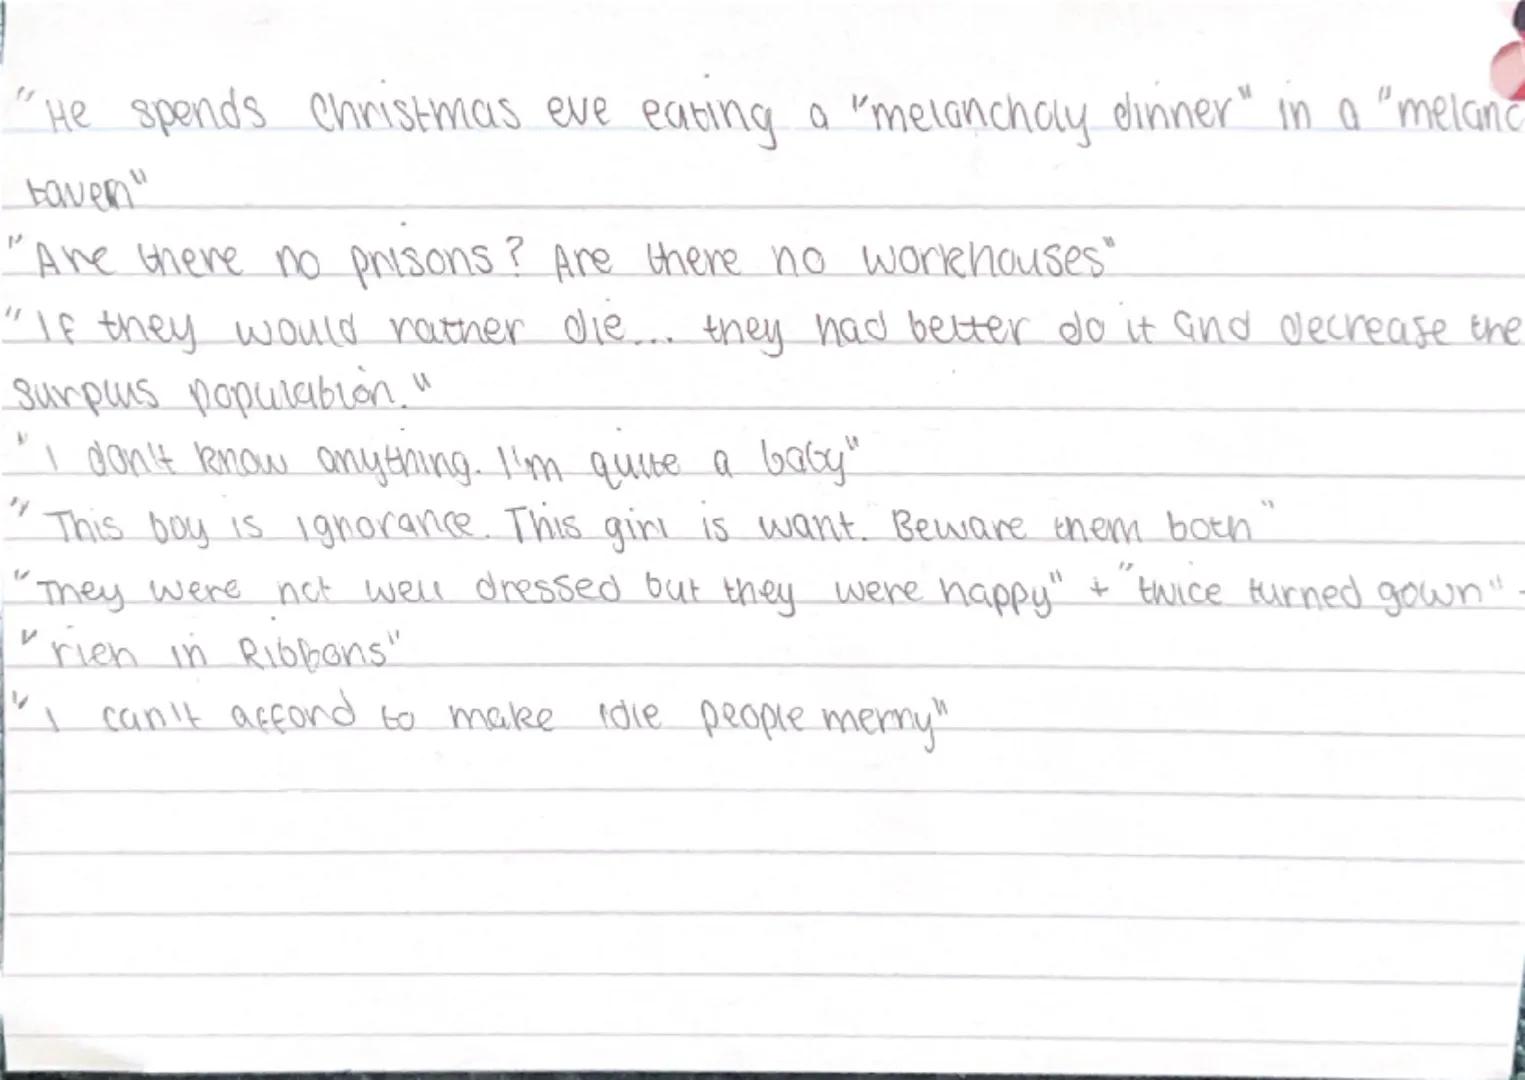 "He spends Christmas eve eating a "melancholy dinner" in a "melanc
tavern"
"Are there no prisons? Are there no workhouses"
"If they would rather die... they had better do it and decrease the
surplus population."
"I don't know anything. I'm quite a baby"
"This boy is ignorance. This girl is want. Beware them both"
"They were not well dressed but they were happy" + "twice turned gown" -
"rich in Ribbons"
"I can't afford to make idle people merry"